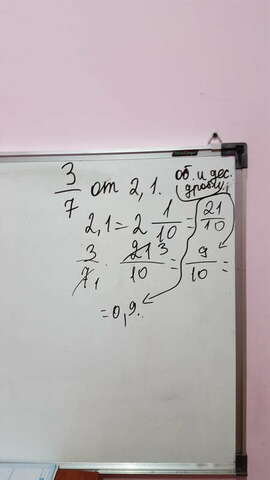 3/7 от 2,1.
об. и дес.
дробь
2,1 = 2 1/10 = 21/10
3/7 1 · 21 3/10 = 9/10 =
= 0,9.